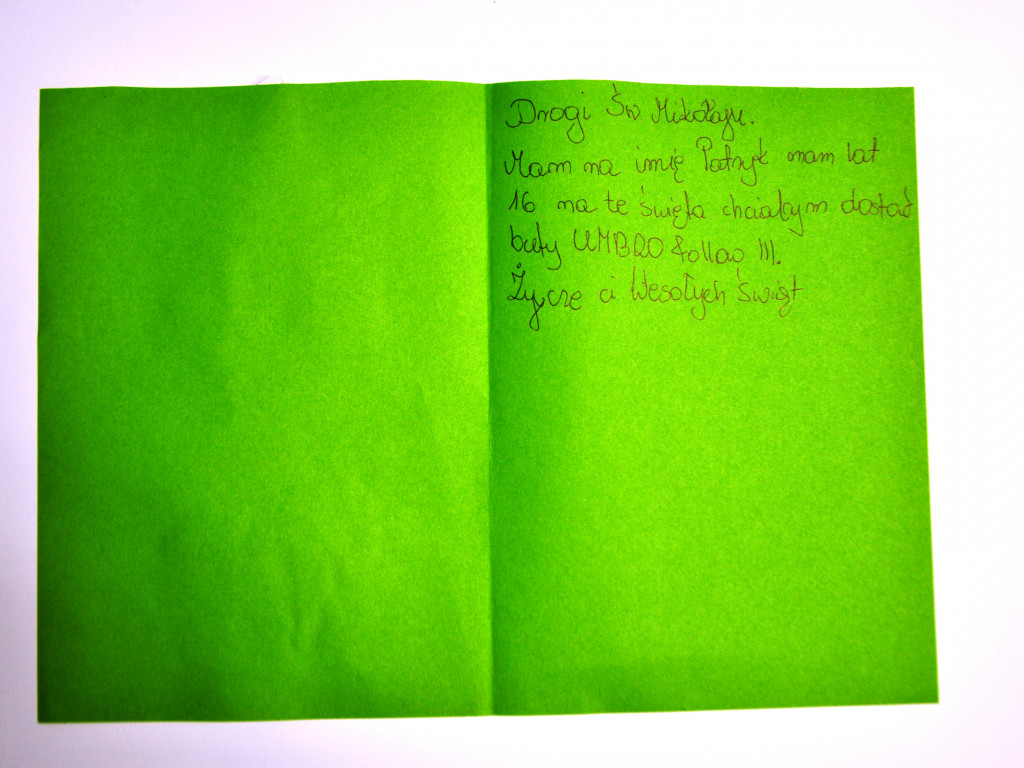 Drogi Św Mikołaju.
Mam na imię Patryk mam lat
16 na te święta chciałbym dostać
buty UMBRO follow III.
Życzę ci Wesołych świąt